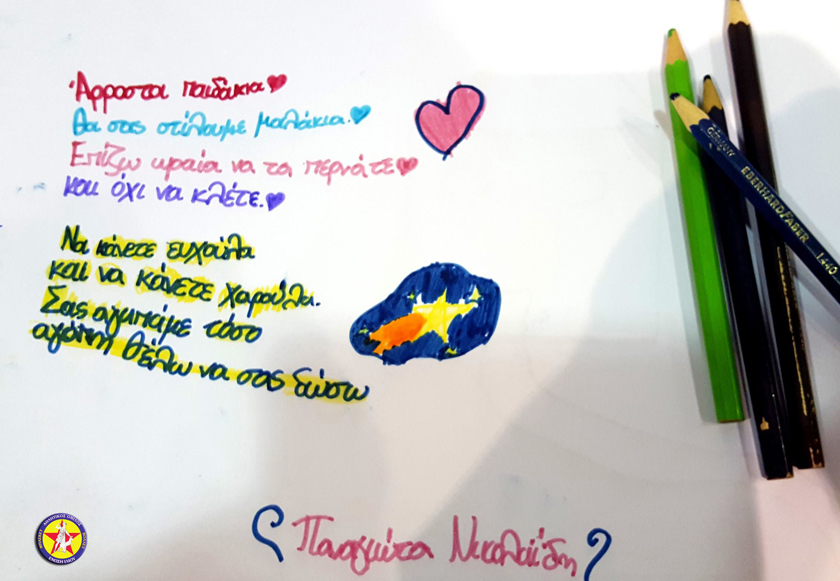 Άρρωστα παιδάκια
θα σας στείλουμε μαλάκια.
Ελπίζω ωραία να τα περνάτε
και όχι να κλέτε.
Να κάνετε ευχούλα
και να κάνετε χαρούλα.
Σας αγαπάμε τόσο
αγάπη θέλω να σας δώσω
Παναγιώτα Νικολαΐδη
EBERHARD FABER 1440